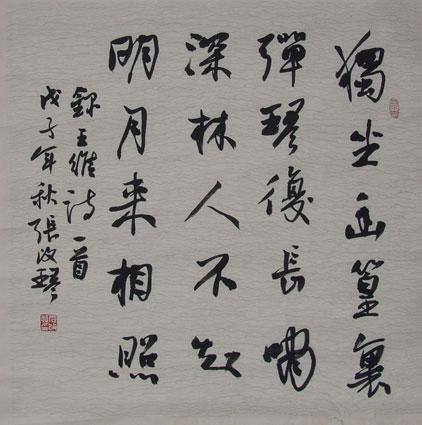 獨坐幽篁裏
彈琴復長嘯
深林人不知
明月来相照
錄王維詩一首
戊子年秋張汝琴